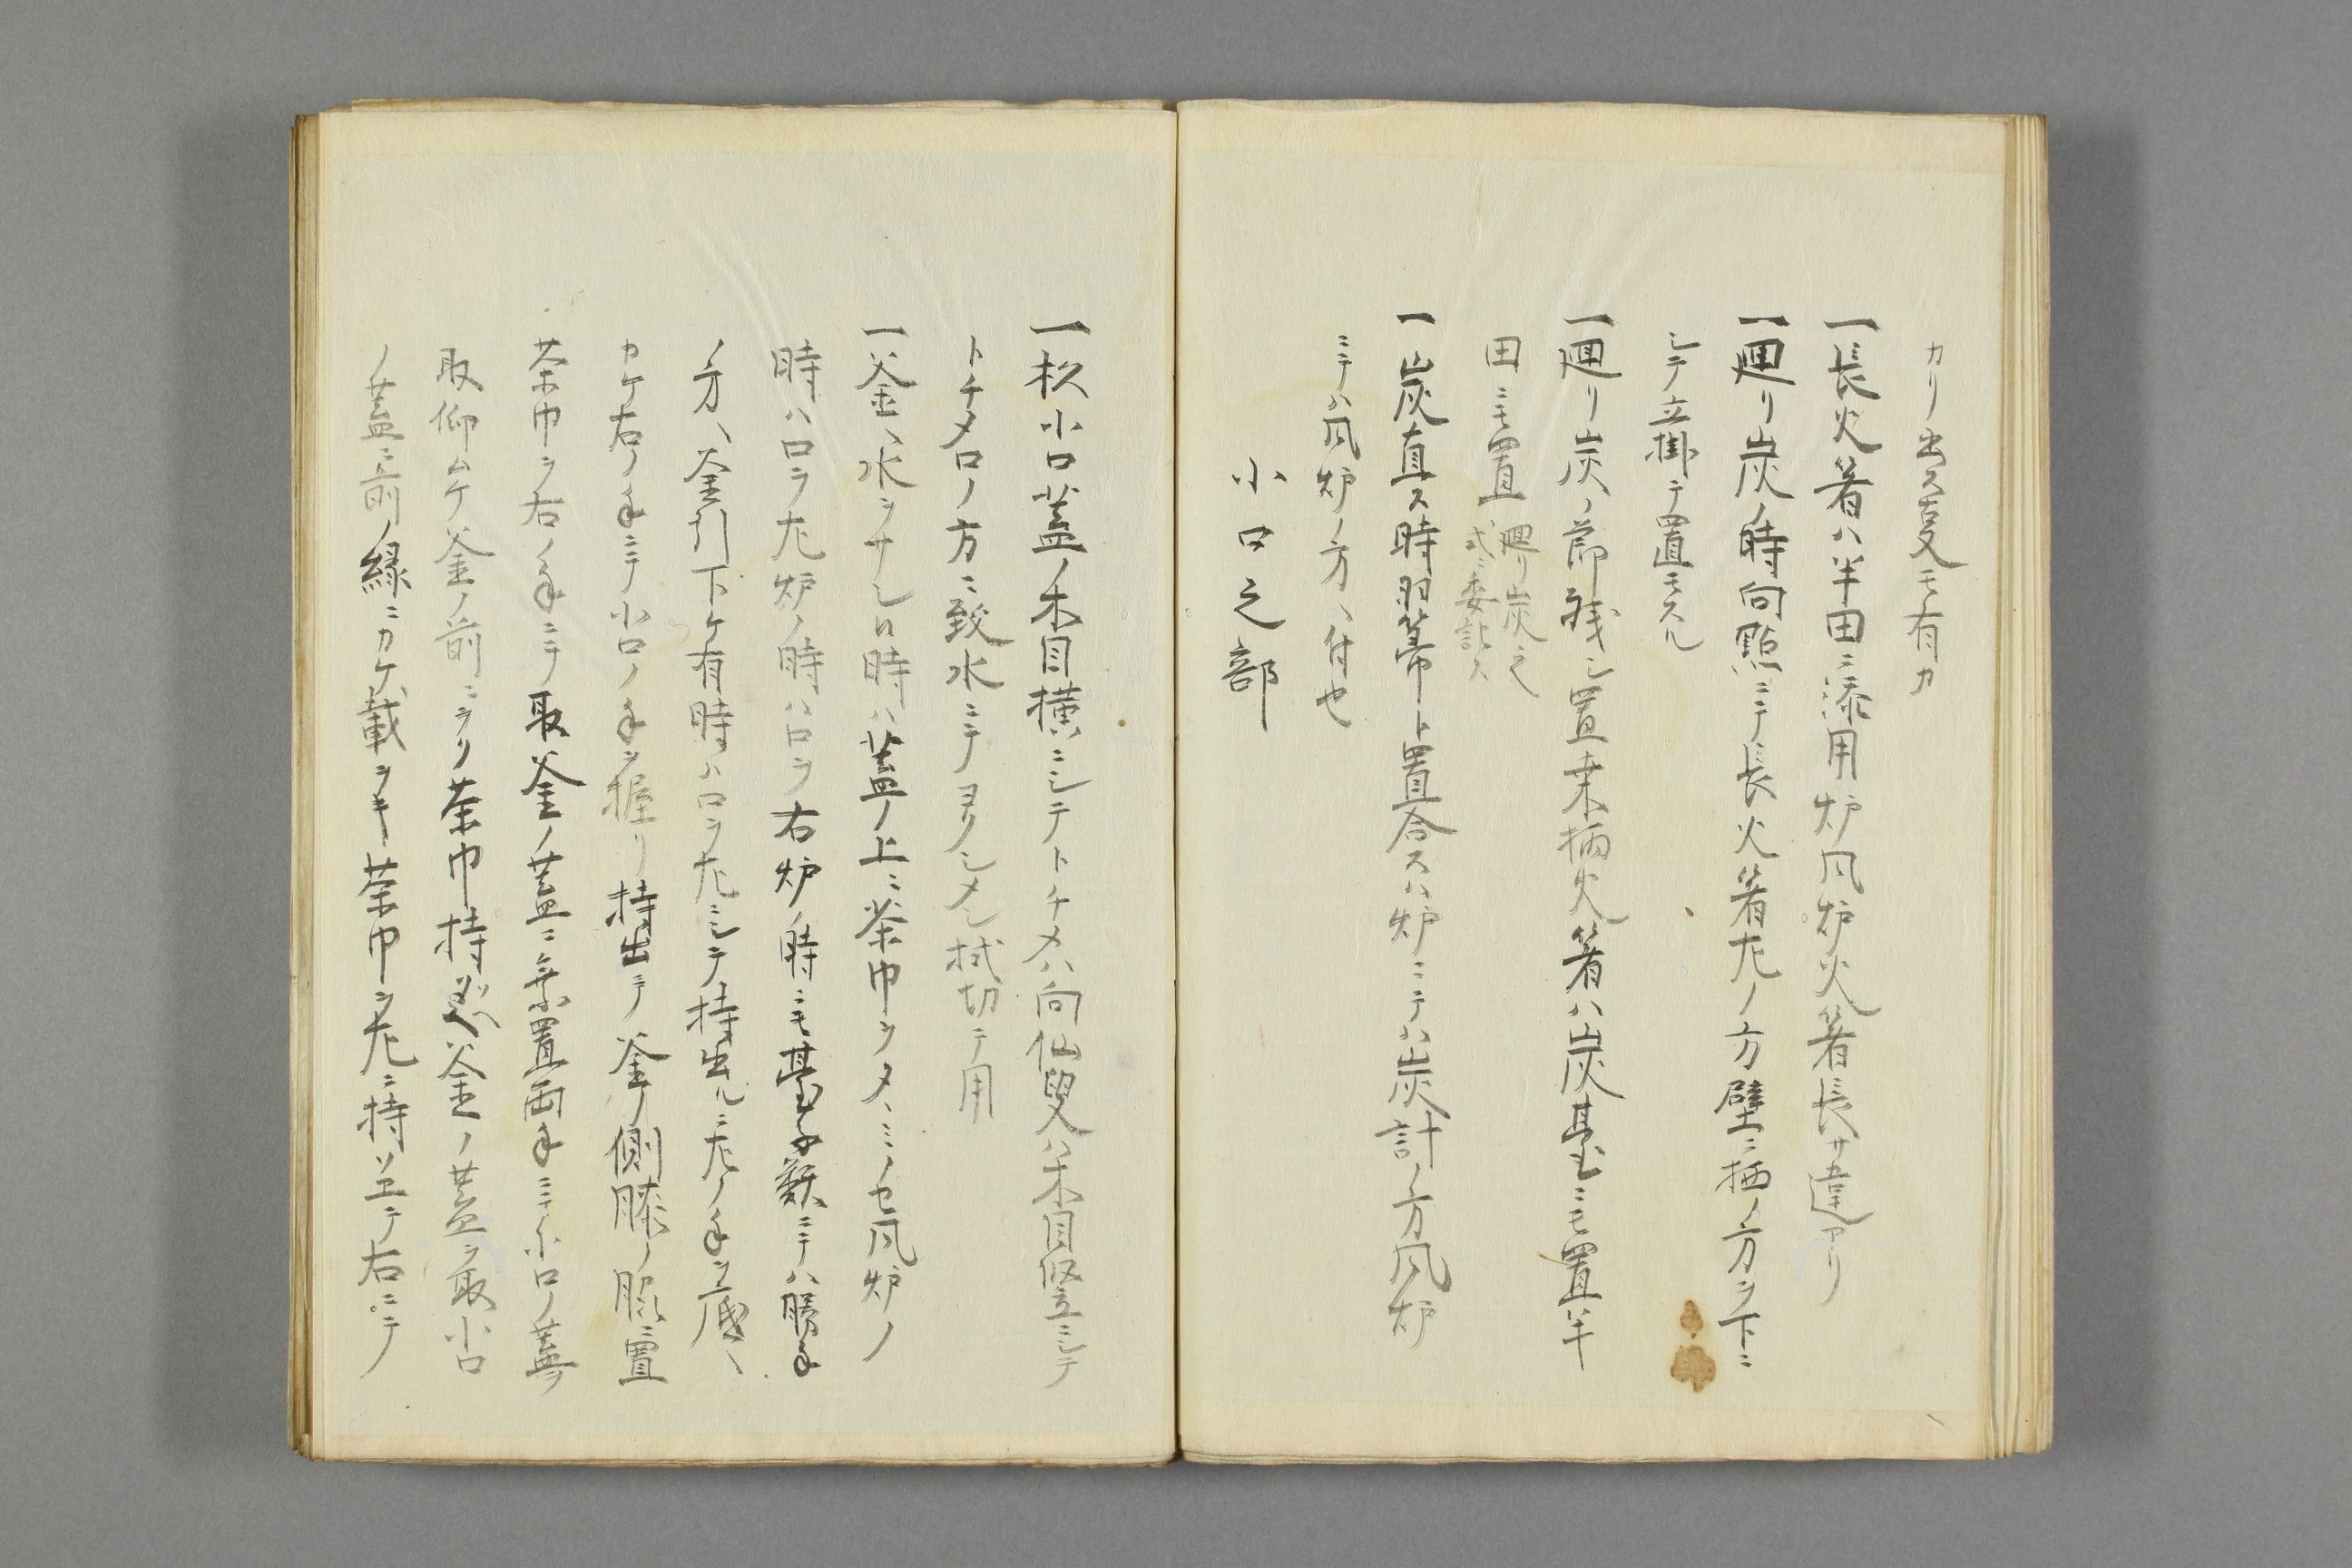 カリ出ス㕝モ有カ
一長火箸ハ半田ニ添用炉風炉火箸長サ違アリ
一廻リ炭ノ時向點ニテ長火箸左ノ方壁ニ柄ノ方ヲ下ニ
シテ立掛テ置モスル
一廻リ炭ノ節残シ置桑柄火箸ハ炭臺ニモ置半
田ニモ置
廻リ炭之
式ニ委記ス
一炭直ス時羽箒ト置合スハ炉ニテハ炭計ノ方風炉
ニテハ風炉ノ方ヘ付也
小口之部
一杉小口蓋ノ木目横ニシテトチメハ向仙叟ハ木目竪ニシテ
トチメ口ノ方ニ致水ニテヨクシメシ拭切テ用
一釜ヘ水ヲサシロ時ハ蓋ノ上ニ茶巾ヲタヽミノセ風炉ノ
時ハ口ヲ左炉ノ時ハ口ヲ右炉ノ時ニモ臺子類ニテハ勝手
ノ方ヘ釜引下ケ有時ハ口ヲ左ニシテ持出ルニ左ノ手ヲ底ヘ
カケ右ノ手ニテ小口ノ手ヲ握リ持出テ釜ノ側膝ノ脇ニ置
茶巾ヲ右ノ手ニテ取釜ノ蓋ニ乗置両手ニテ小口ノ蓋ヲ
取仰ムケ釜ノ前ニヲリ茶巾持釜ノ蓋ヲ取小口
ノ蓋ニ前ノ縁ニカケ載ヲキ茶巾ヲ左ニ持ソエテ右ニテ